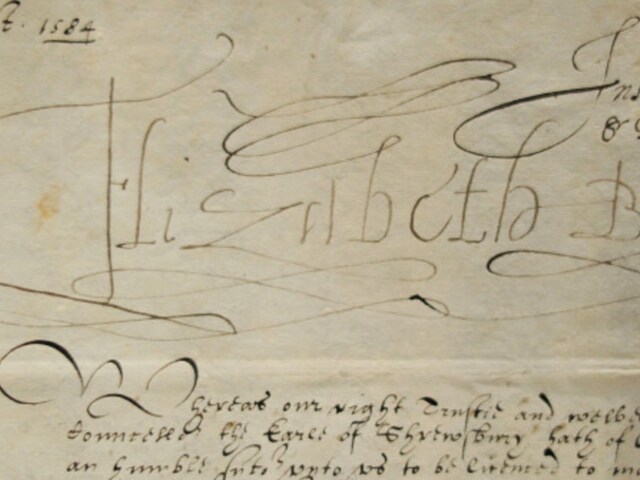 1584
Ins
&
Elizabeth R
Whereas our right Trustie and welbe
Councelle the Earle of Shrewsbury hath of
an humble sute vnto vs to be licenced to ma